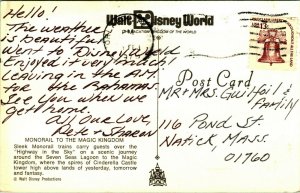 Hello!
The weather
is beautiful
Went to Disneyworld
Enjoyed it very much!
Leaving in the A.M.
for the Bahamas.
See you when we
get home
All Our Love,
Sharon
MONORAIL TO THE MAGIC KINGDOM
Sleek Monorail trains carry guests over the
"Highway in the Sky" on a scenic journey
around the Seven Seas Lagoon to the Magic
Kingdom, where the spires of Cinderella Castle
tower high above lands of yesterday, tomorrow
and fantasy.
© Walt Disney Productions
Walt Disney World
VACATION KINGDOM OF THE WORLD
Post Card
Mr & Mrs. Guilfoil &
Family
116 Pond St.
Natick, Mass.
01760